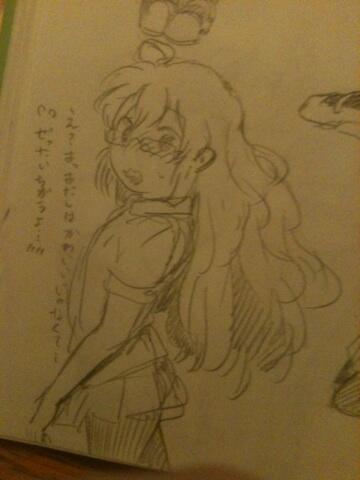 え？まっあたしはかわいいじゃなくて…
ぜったいちがうよ…////